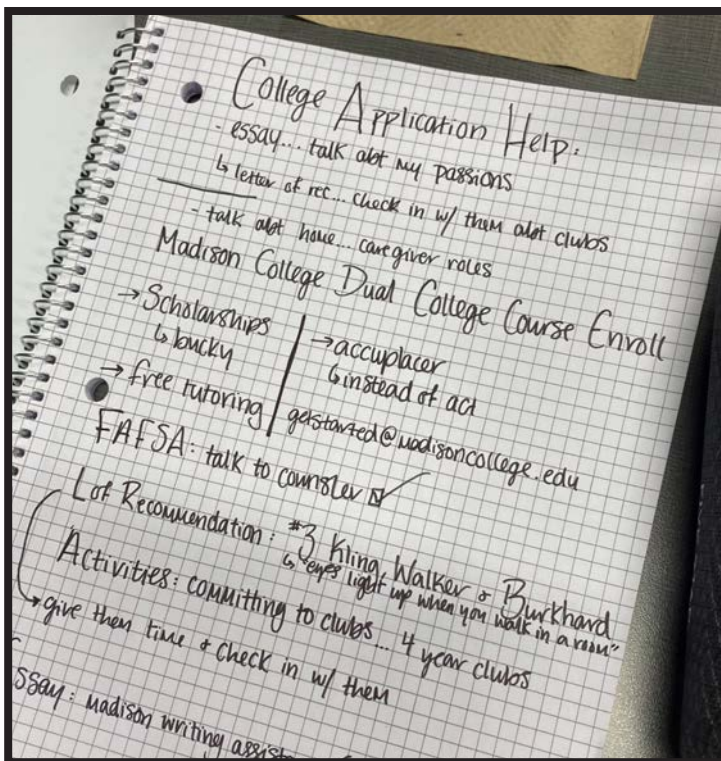 College Application Help:
- essay... talk abt my passions
↳ letter of rec... check in w/ them abt clubs
- talk abt home... caregiver roles
Madison College Dual College Course Enroll
→ Scholarships
↳ bucky
→ free tutoring
→ accuplacer
↳ instead of act
getstarted@madisoncollege.edu
FAFSA: talk to counsler ☑
L of Recommendation: #3 Kling, Walker & Burkhard
↳ "eyes light up when you walk in a room"
Activities: committing to clubs... 4 year clubs
→ give them time & check in w/ them
ssay: Madison writing assist